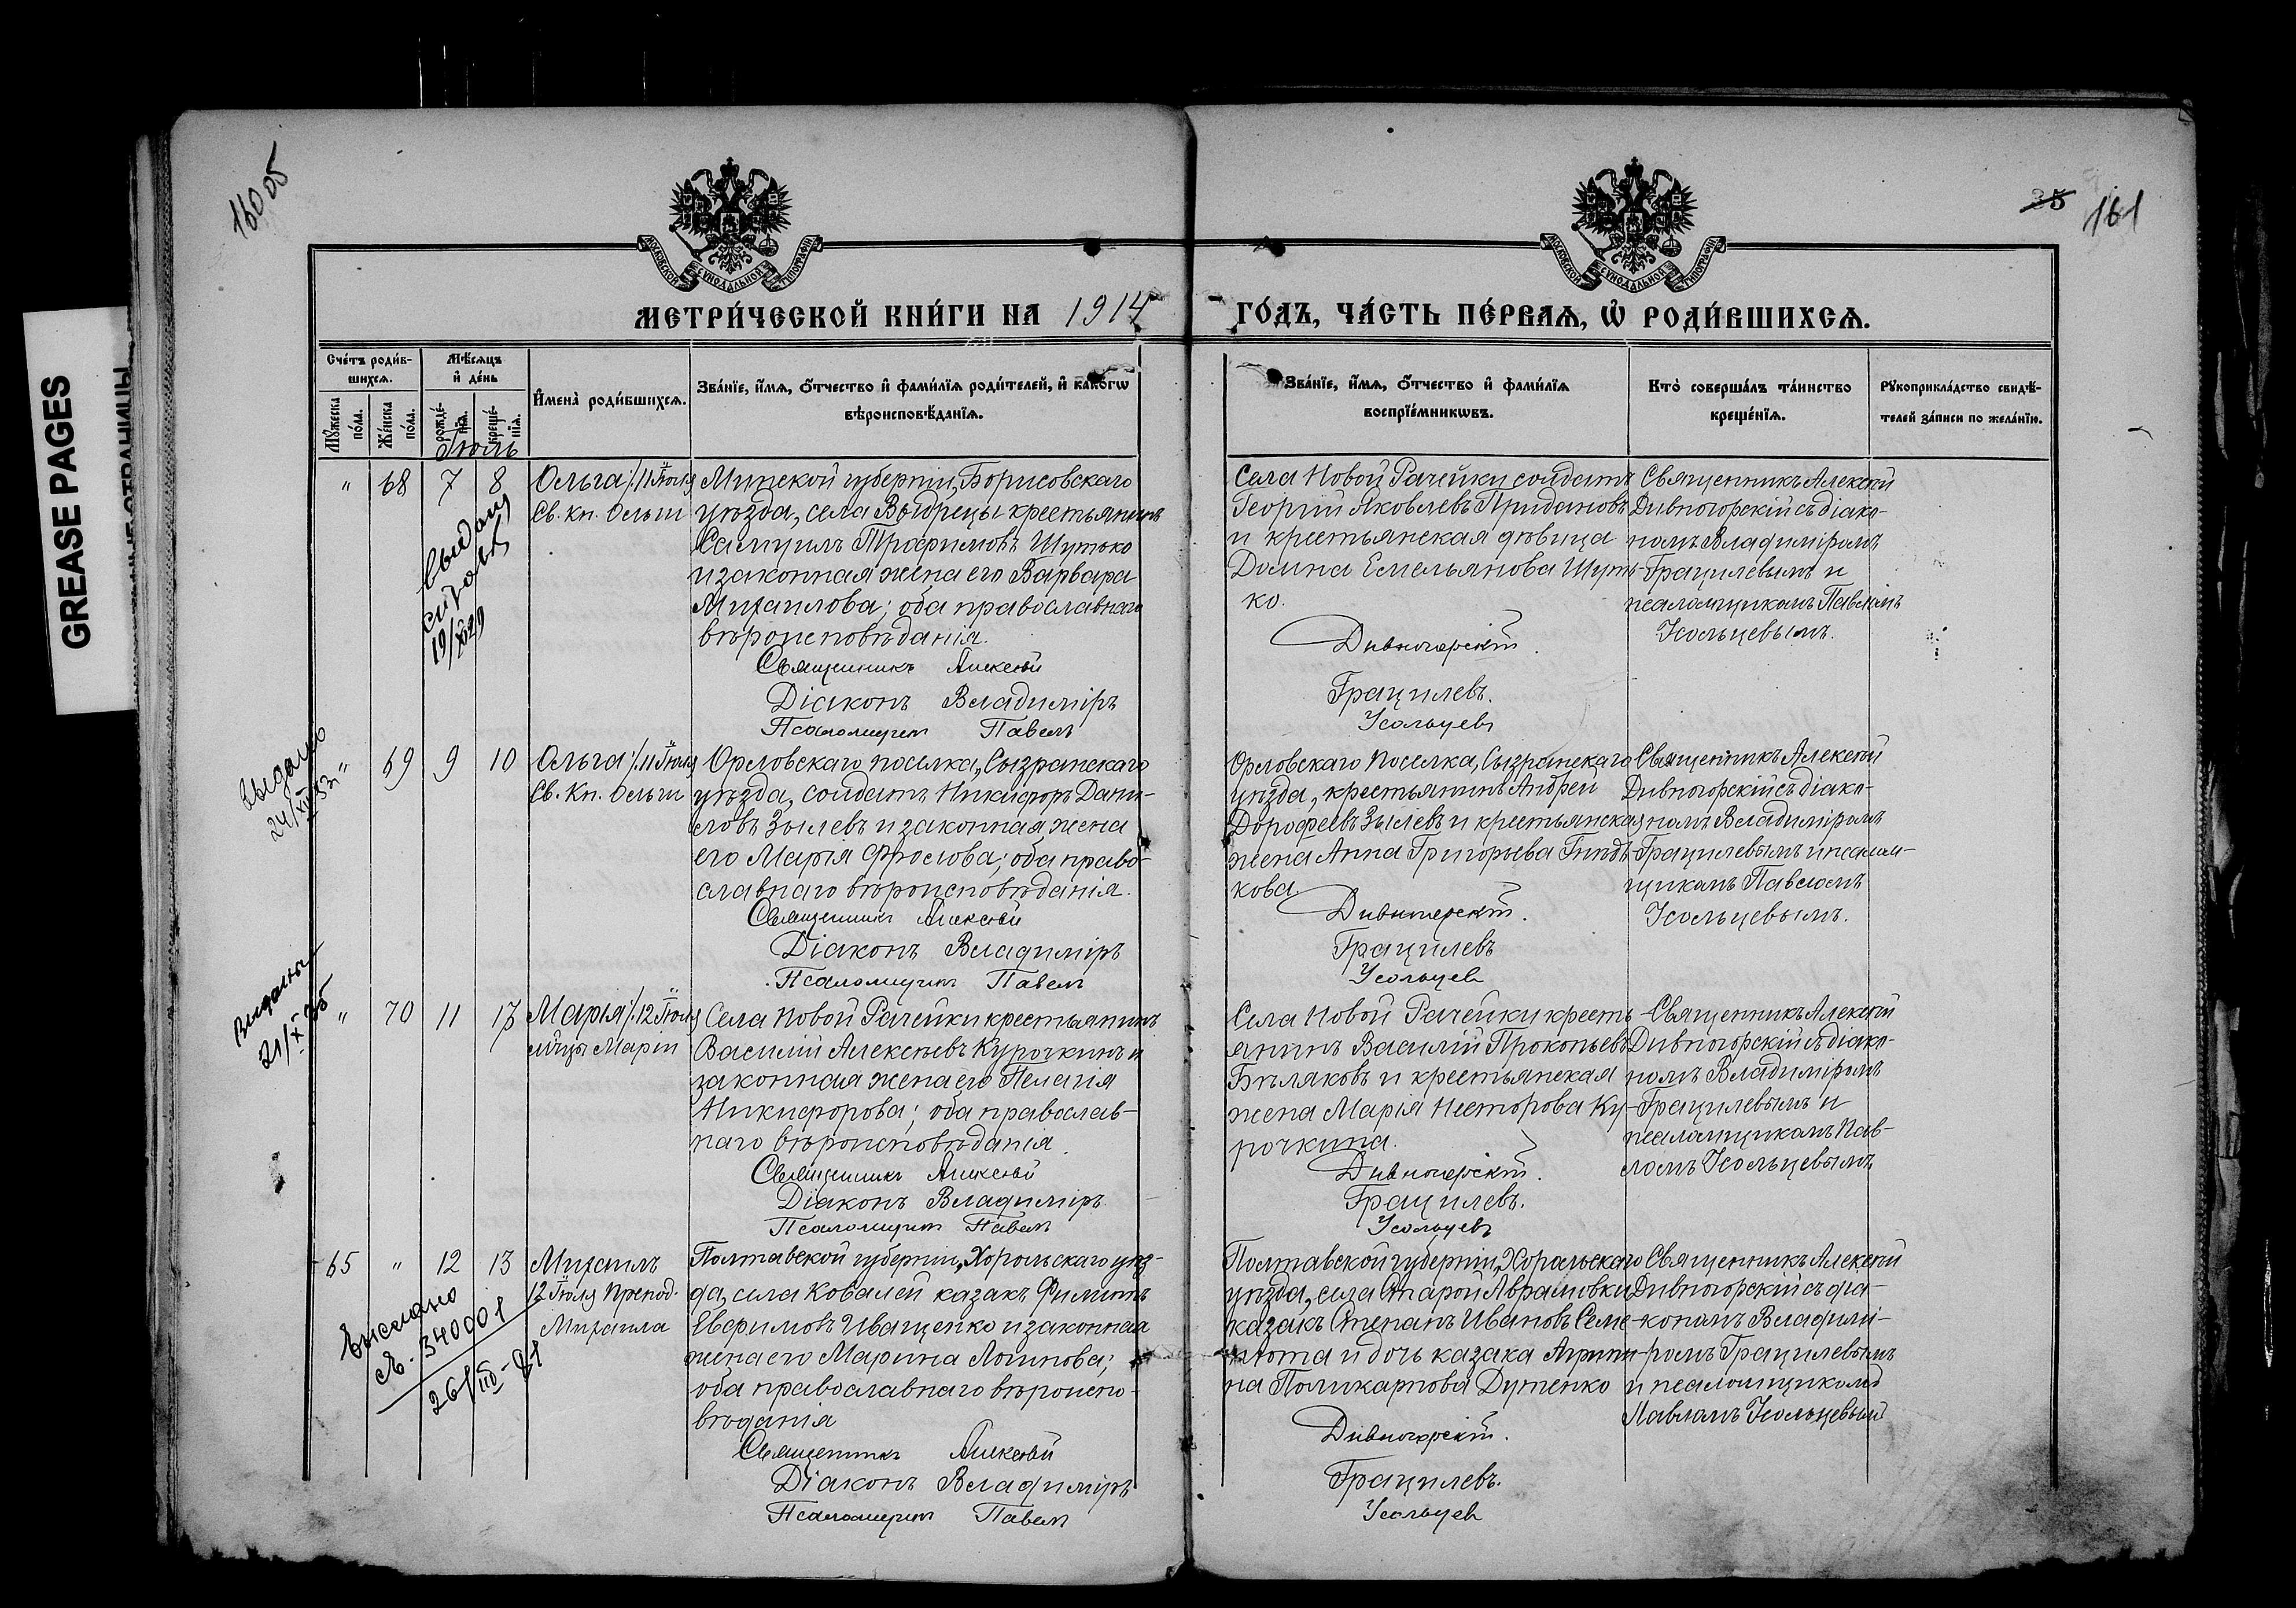 GREASE PAGES
160 об
35
161
МОСКОВСКОЙ СѴНОДАЛЬНОЙ ТИПОГРАФІИ
МОСКОВСКОЙ СѴНОДАЛЬНОЙ ТИПОГРАФІИ
МЕТРИ́ЧЕСКОЙ КНИ́ГИ НА 1914 ГО́ДЪ, ЧА́СТЬ ПЕ́РВАѦ, Ѡ҆ РОДИ́ВШИХСѦ.
Сче́тъ роди́в-
шихсѧ.
Мѣ́сѧцъ
и҆ де́нь
Мꙋ́жеска
по́ла.
Же́нска
по́ла.
рожде́-
нїѧ.
креще́-
нїѧ.
И҆мена̀ роди́вшихсѧ.
Зва́нїе, и҆́мѧ, ѻ҆́тчество и҆ фами́лїѧ роди́телей, и҆ како́гѡ
вѣроисповѣ́данїѧ.
Зва́нїе, и҆́мѧ, ѻ҆́тчество и҆ фами́лїѧ
воспрїе́мникѡвъ.
Кто̀ соверша́лъ та́инство
креще́нїѧ.
Рꙋкоприкла́дство свидѣ́-
телей за́писи по жела́нїю.
Іюль
" 68 7 8
Ольга /11 Іюля
Св. Кн. Ольги
Минской губерніи, Борисовскаго
уѣзда, села Выдрецы крестьянинъ
Самуилъ Трофимовъ Шутько
и законная жена его Варвара
Михаилова; оба православнаго
вѣроисповѣданія.
Священникъ Алексѣй
Діаконъ Владиміръ
Псаломщикъ Павелъ
Села Новой Рачейки солдатъ
Георгій Яковлевъ Придановъ
и крестьянская дѣвица
Домна Емельянова Шуть-
ко.
Дивногорскій.
Грацилевъ.
Усольцевъ
Священникъ Алексѣй
Дивногорскій съ діако-
номъ Владиміромъ
Грацилевымъ и
псаломщикомъ Павломъ
Усольцевымъ.
Выдано
24/XII 53 г.
" 69 9 10
Ольга /11 Іюля
Св. Кн. Ольги
Орловскаго поселка, Сызранскаго
уѣзда, солдатъ Никифоръ Дани-
ловъ Зылевъ и законная жена
его Марія Фролова; оба право-
славнаго вѣроисповѣданія.
Священникъ Алексѣй
Діаконъ Владиміръ
Псаломщикъ Павелъ
Орловскаго поселка, Сызранскаго
уѣзда, крестьянинъ Андрей
Дорофеевъ Зылевъ и крестьянская
жена Анна Григорьева Гнѣд-
кова.
Дивногорскій.
Грацилевъ
Усольцев
Священникъ Алексѣй
Дивногорскій съ діако-
номъ Владиміромъ
Грацилевымъ и псалом-
щикомъ Павломъ
Усольцевымъ.
21/X 35
" 70 11 17
Марія /12 Іюля
м-цы Маріи
Села Новой Рачейки крестьянинъ
Василій Алексѣевъ Курочкинъ и
законная жена его Пелагія
Никифорова; оба православ-
наго вѣроисповѣданія.
Священникъ Алексѣй
Діаконъ Владиміръ
Псаломщикъ Павелъ
Села Новой Рачейки кресть-
янинъ Василій Прокопьевъ
Бѣляковъ и крестьянская
жена Марія Несторова Ку-
рочкина.
Дивногорскій.
Грацилевъ.
Усольцевъ
Священникъ Алексѣй
Дивногорскій съ діако-
номъ Владиміромъ
Грацилевымъ и
псаломщикомъ Пав-
ломъ Усольцевымъ
65 " 12 13
Выслано
26/III-81
Михаилъ
12 Іюля Препод.
Михаила
Полтавской губерніи, Хорольскаго уѣз-
да, села Ковалей казакъ Филиппъ
Евфимовъ Иващенко и законная
жена его Марина Логинова;
оба православнаго вѣроиспо-
вѣданія
Священникъ Алексѣй
Діаконъ Владиміръ
Псаломщикъ Павелъ
Полтавской губерніи, Хорольскаго
уѣзда, села Старой Аврамовки
казакъ Степанъ Ивановъ Семе-
нюта и дочь казака Агрипи-
на Поликарпова Дутенко
Дивногорскій.
Грацилевъ.
Усольцев
Священникъ Алексѣй
Дивногорскій съ діа-
кономъ Владимі-
ромъ Грацилевымъ
и псаломщикомъ
Павломъ Усольцевымъ